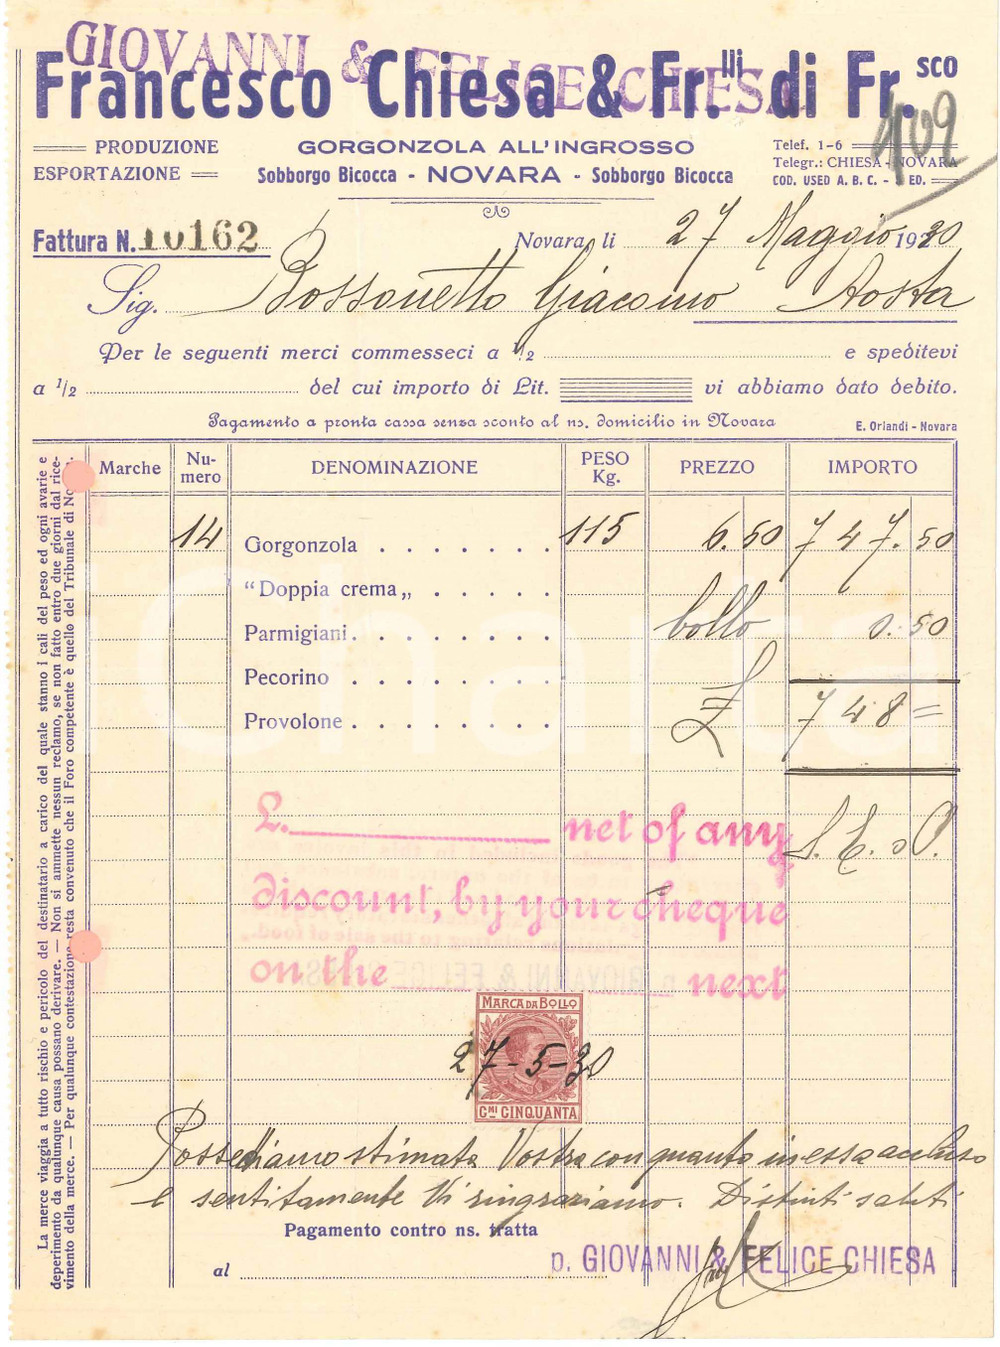 GIOVANNI & FELICE CHIESA
Francesco Chiesa & Fr.lli di Fr.sco
409
PRODUZIONE
ESPORTAZIONE
GORGONZOLA ALL'INGROSSO
Sobborgo Bicocca - NOVARA - Sobborgo Bicocca
Telef. 1-6
Telegr.: CHIESA - NOVARA
COD. USED A. B. C. - ED.
Fattura N. 10162
Novara, li 27 Maggio 1930
Sig. Bossonetto Giacomo Aosta
Per le seguenti merci commesseci a 1/2 e speditevi
a 1/2 del cui importo di Lit. vi abbiamo dato debito.
Pagamento a pronta cassa senza sconto al ns. domicilio in Novara
E. Orlandi - Novara
Marche Nu-mero DENOMINAZIONE PESO Kg. PREZZO IMPORTO
14 Gorgonzola . . . . . . . 115 6.50 747.50
“Doppia crema„ . . . . .
Parmigiani . . . . . . . . bollo 0.50
Pecorino . . . . . . .
Provolone . . . . . . . £ 748=
S. E. o O.
£. net of any
discount, by your cheque
on the next
MARCA DA BOLLO
27-5-30
CMI CINQUANTA
Possediamo stimata Vostra con quanto in essa accluso
e sentitamente Vi ringraziamo. Distinti saluti
Pagamento contro ns. tratta
al
p. GIOVANNI & FELICE CHIESA
La merce viaggia a tutto rischio e pericolo del destinatario a carico del quale stanno i cali del peso ed ogni avarie e
deperimento da qualunque causa possano derivare. — Non si ammette nessun reclamo, se non fatto entro due giorni dal rice-
vimento della merce. — Per qualunque contestazione resta convenuto che il Foro competente è quello del Tribunale di